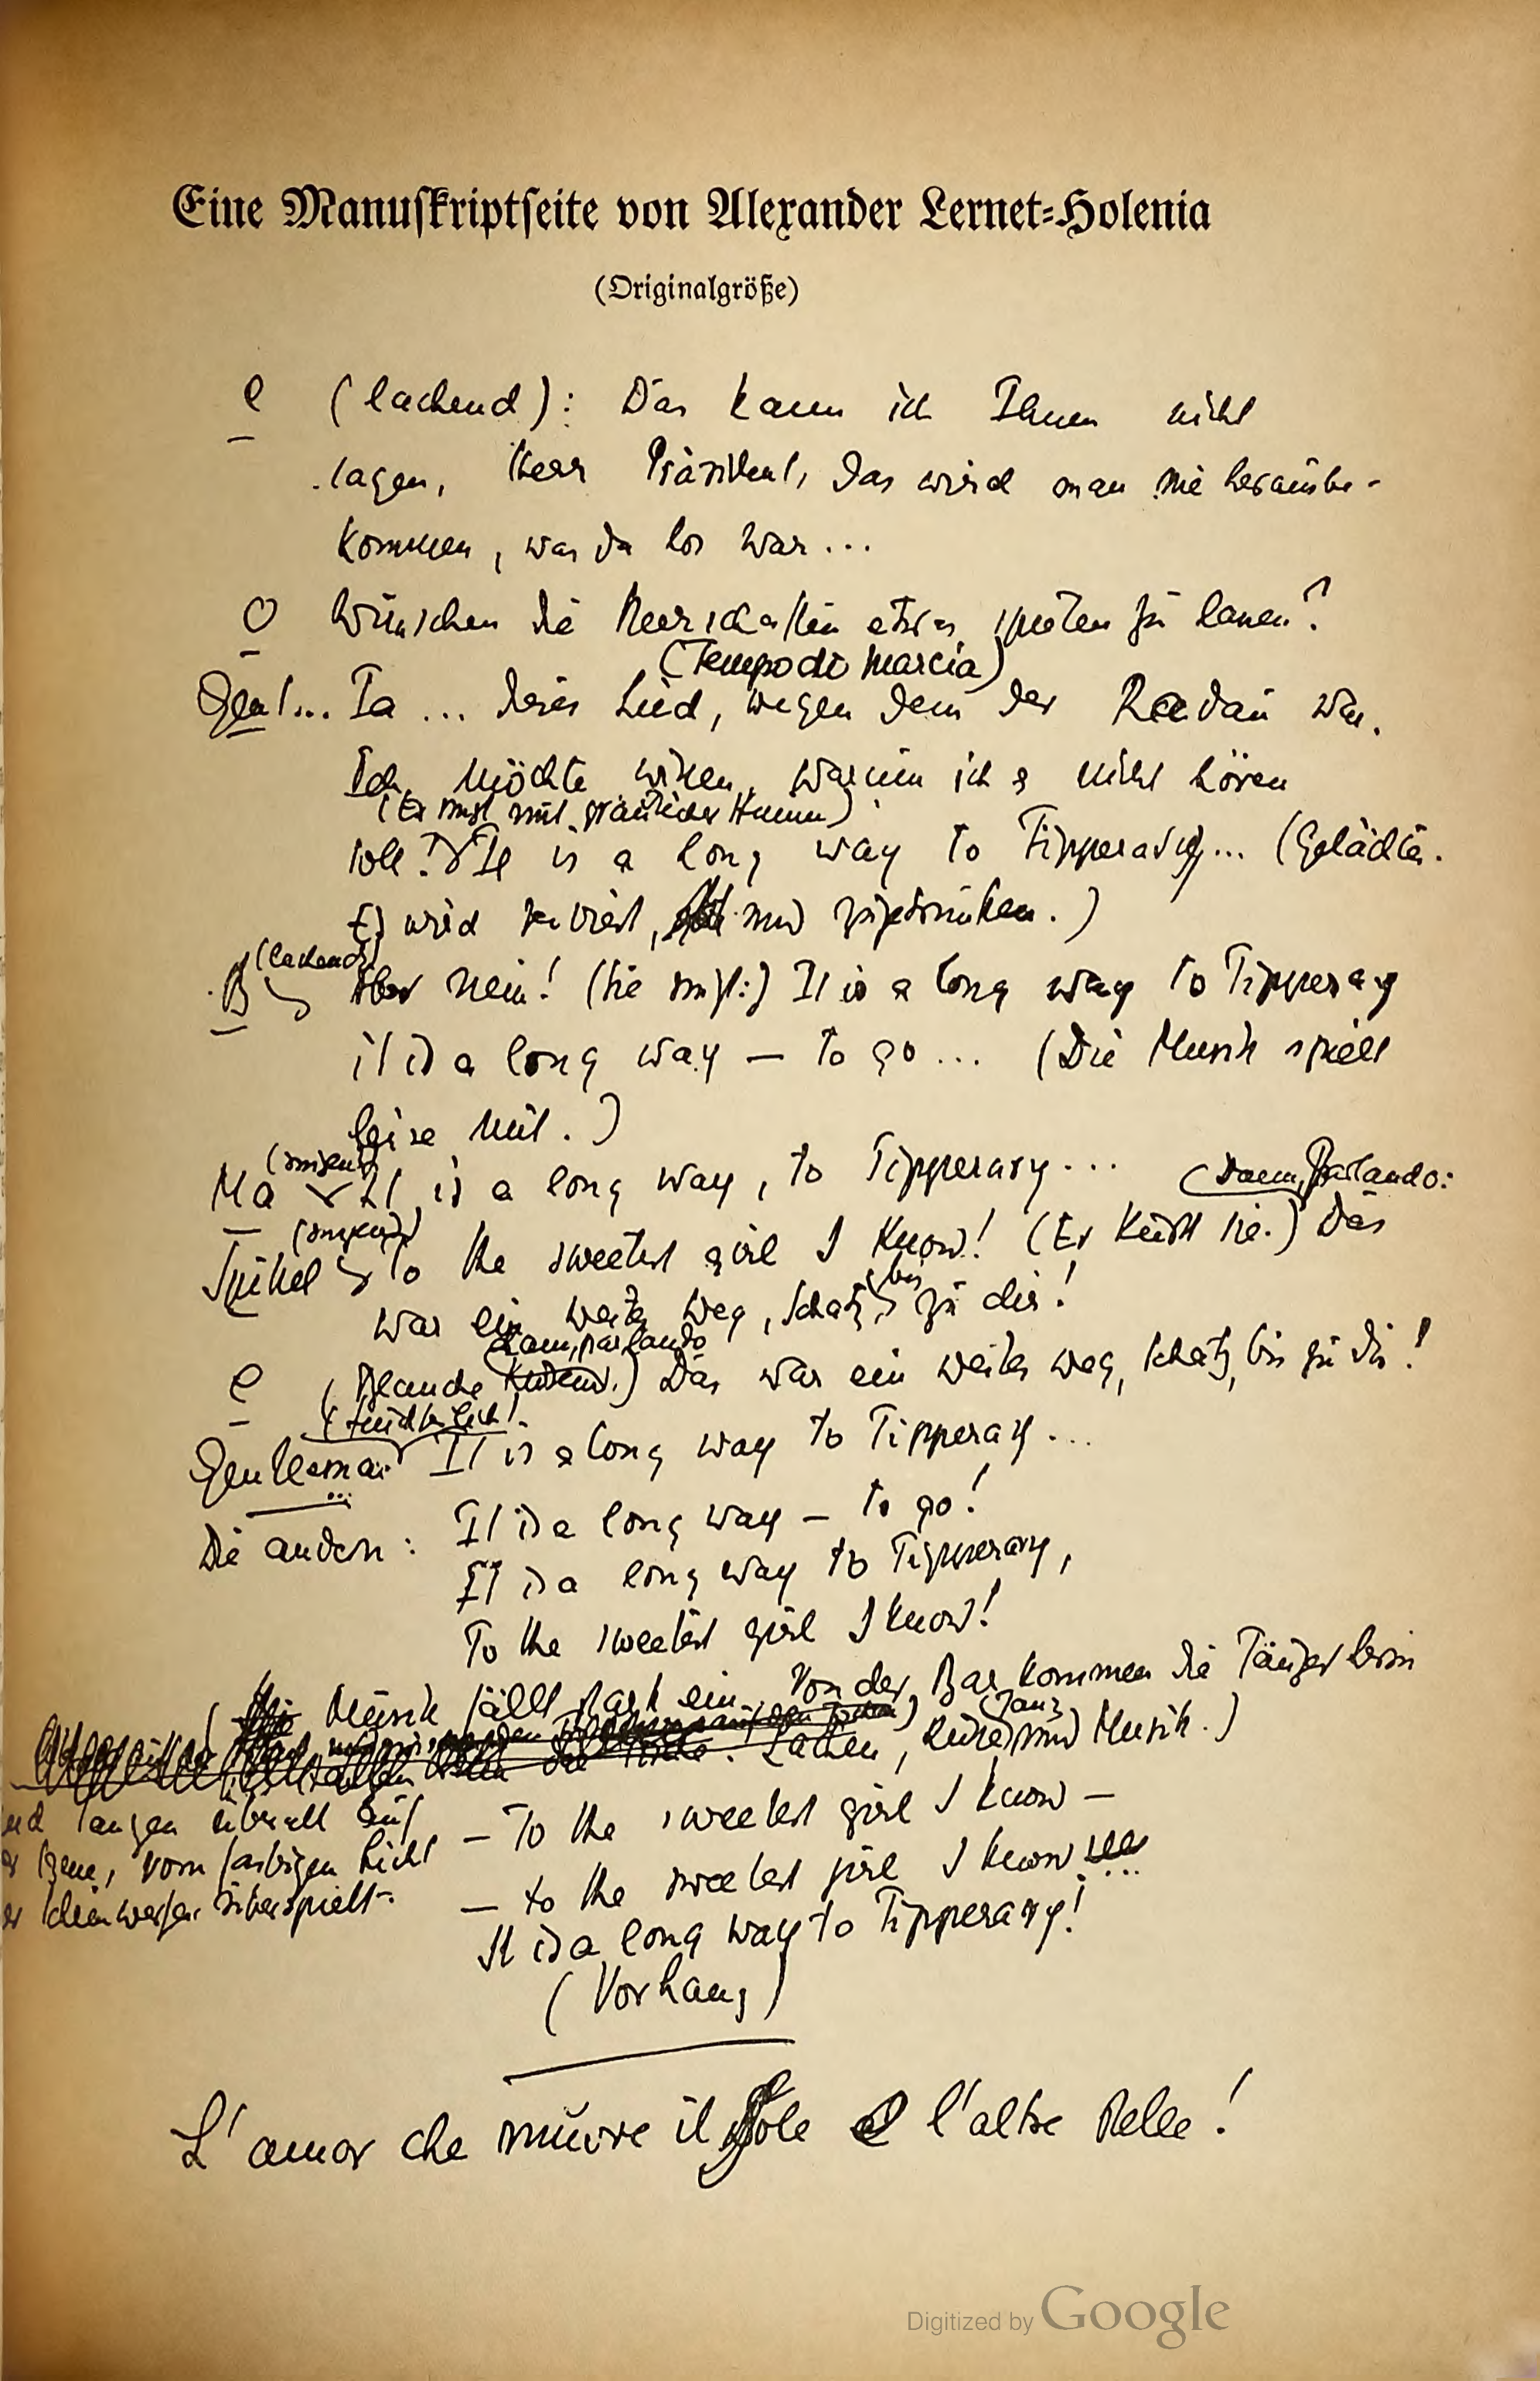 Eine Manuskriptseite von Alexander Lernet-Holenia
(Originalgröße)
e (lachend): Das kann ich Ihnen nicht
sagen, Herr Präsident, das wird man nie herausbe-
kommen, was da los war...
O Wünschen die Herrschaften etwas spielen zu lassen?
(Tempo di Marcia)
Gent... Ja ... dieses Lied, wegen dem der Radau war.
Ich möchte wissen, warum ich es nicht hören
(Er singt mit Humor)
soll! It is a long way to Tipperary... (Gelächter.
Es wird serviert, und zugetrunken.)
(lachend)
B Aber nein! (Sie singt:) It is a long way to Tipperary
it is a long way — to go ... (Die Musik spielt
leise mit.)
(singend)
Ma It is a long way, to Tipperary...
(Dann, Parlando:
(singend)
Spikel To the sweetest girl I know! (Er küsst sie.) Das
war ein weiter Weg, Schatz, bis zu dir!
dann, parlando
e ( Das war ein weiter Weg, Schatz, bis zu dir!
Gentleman It is a long way to Tipperary...
Die andern: It is a long way — to go!
It is a long way to Tipperary,
To the sweetest girl I know!
( Musik fällt stark ein. Von der Bar kommen die Tänzer herein
(Tanz
Lachen, und Musik.)
und tanzen überall auf
der Szene, vom farbigen Licht
der Scheinwerfer überspielt.
— To the sweetest girl I know —
— to the sweetest girl I know ...
It is a long way to Tipperary!
(Vorhang)
L'amor che muove il sole e l'altre stelle!
Digitized by Google